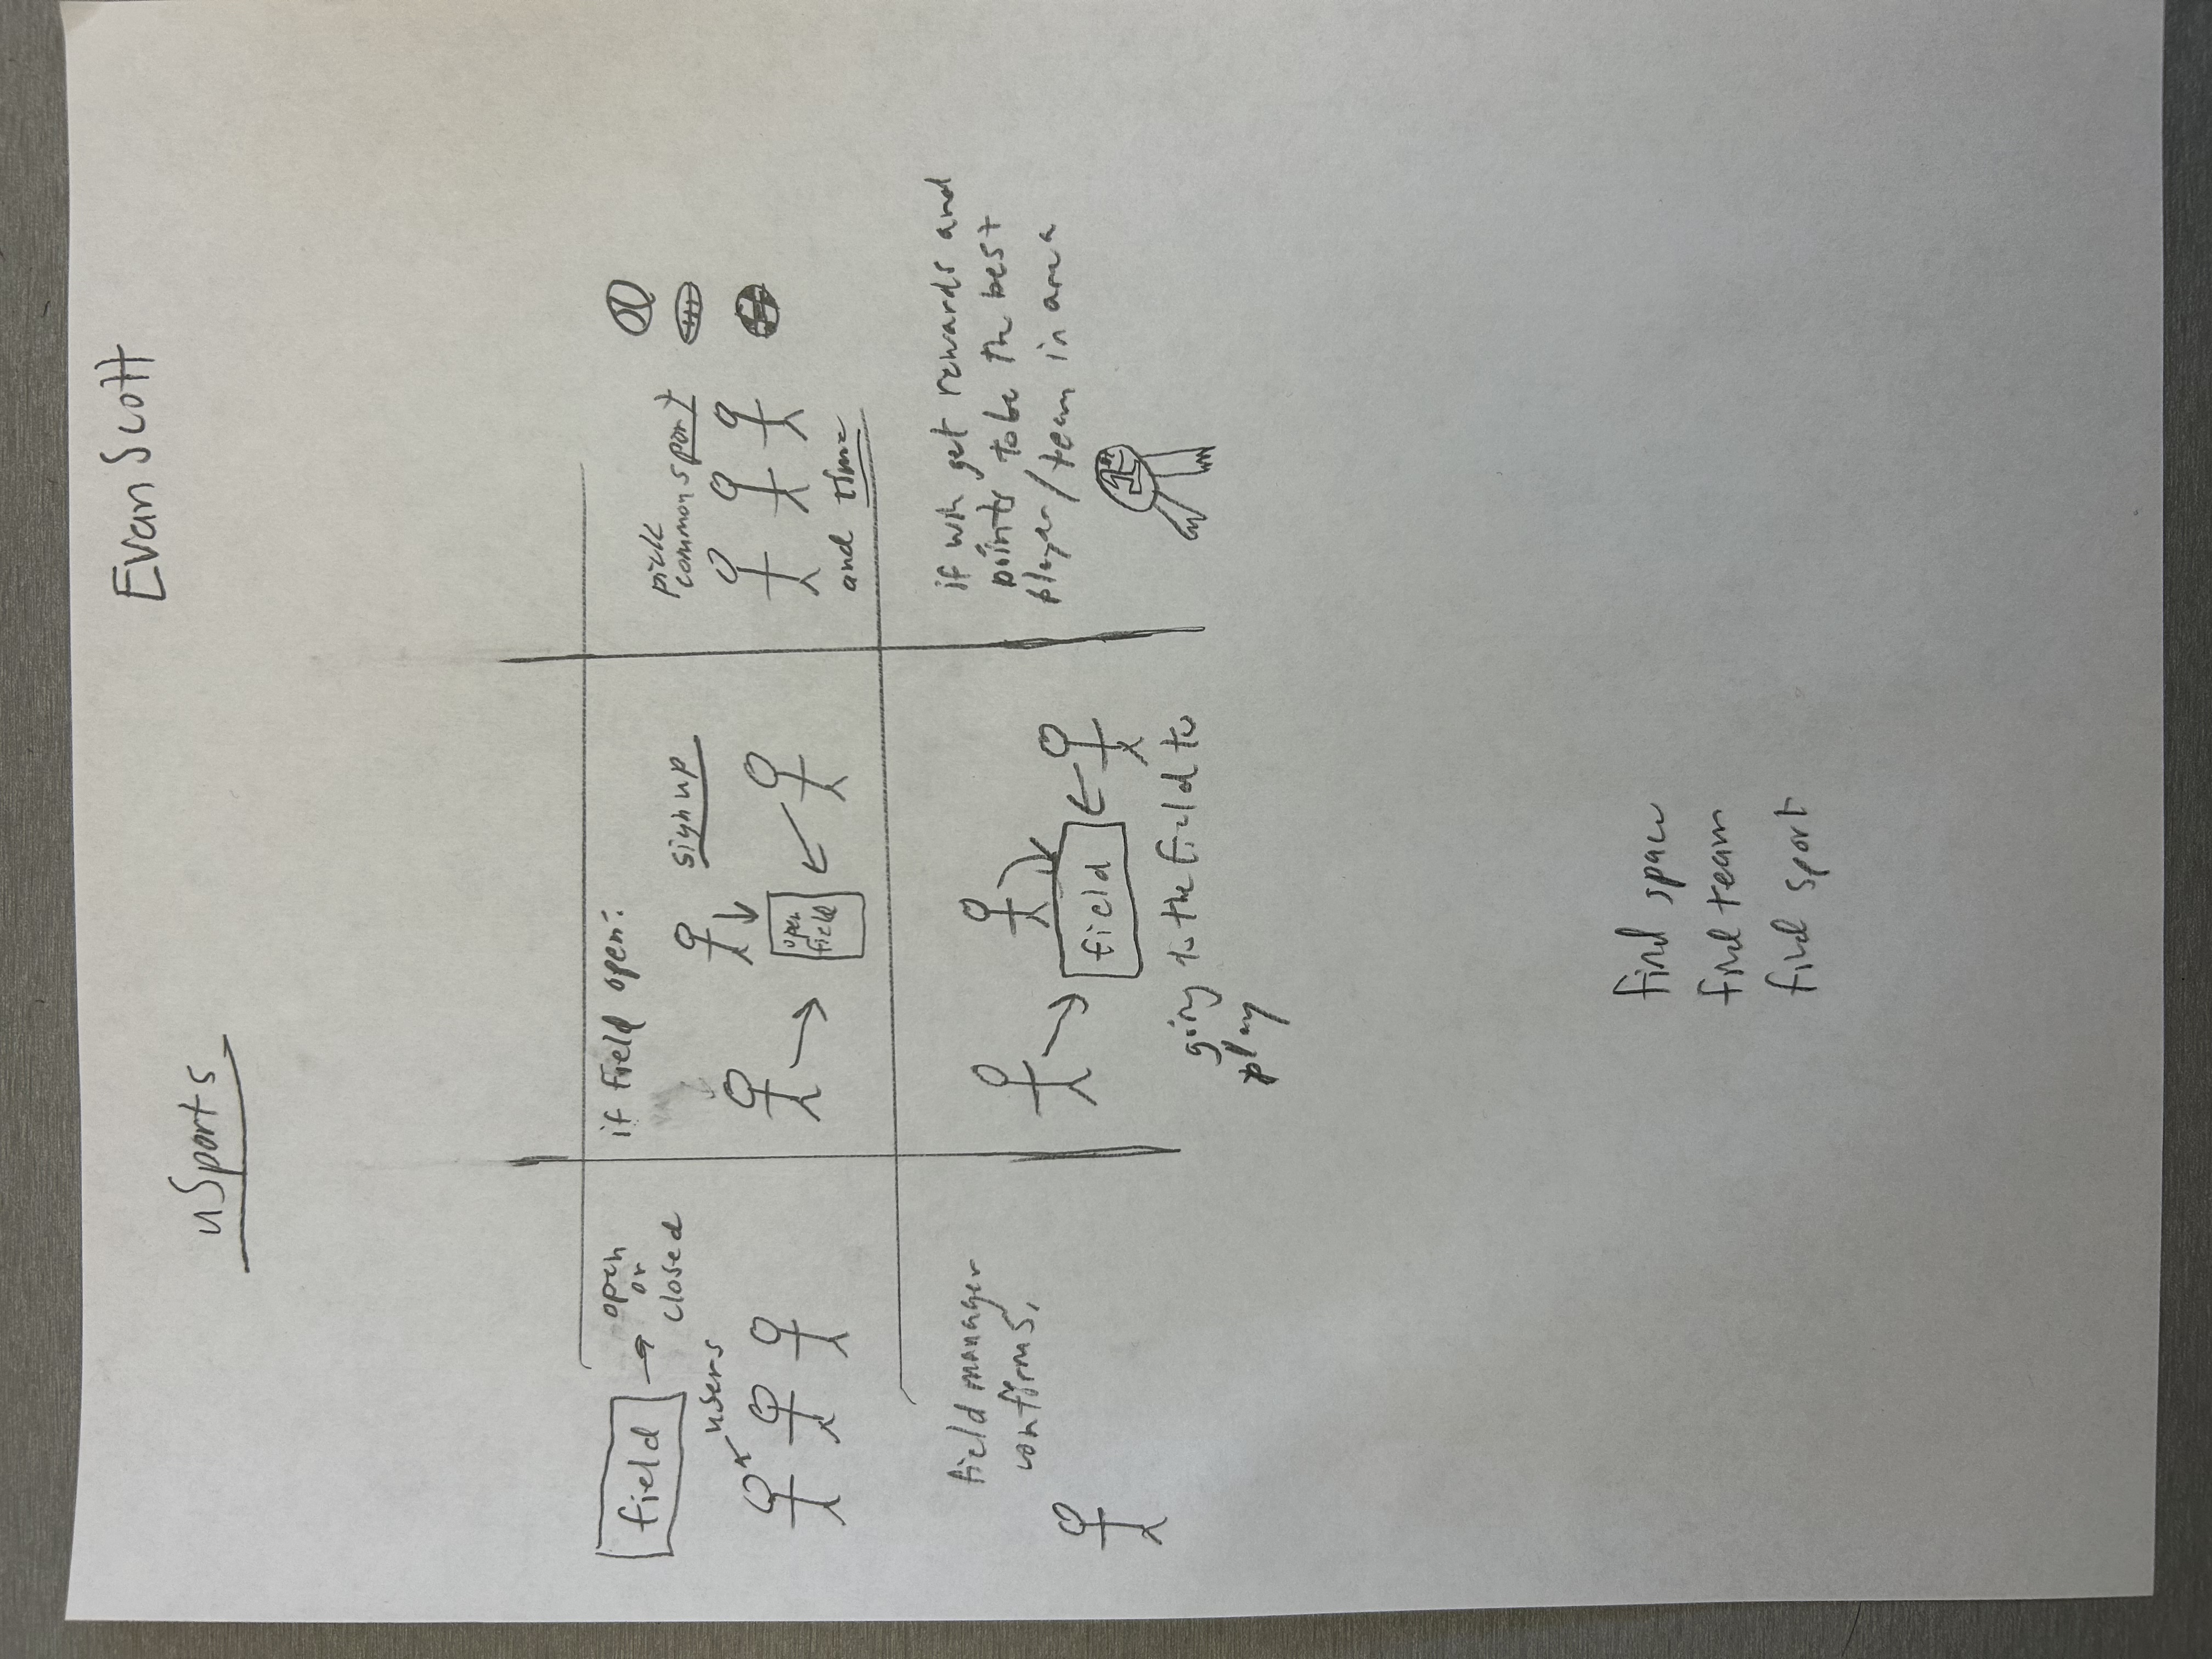 Evan Scott
uSports
field
open
or
closed
users
if Field open:
sign up
open
field
pick
common sport
and time
field manager
confirms,
field
going to the field to
play
if win get rewards and
points to be the best
player/team in area
1st
find space
find team
find sport